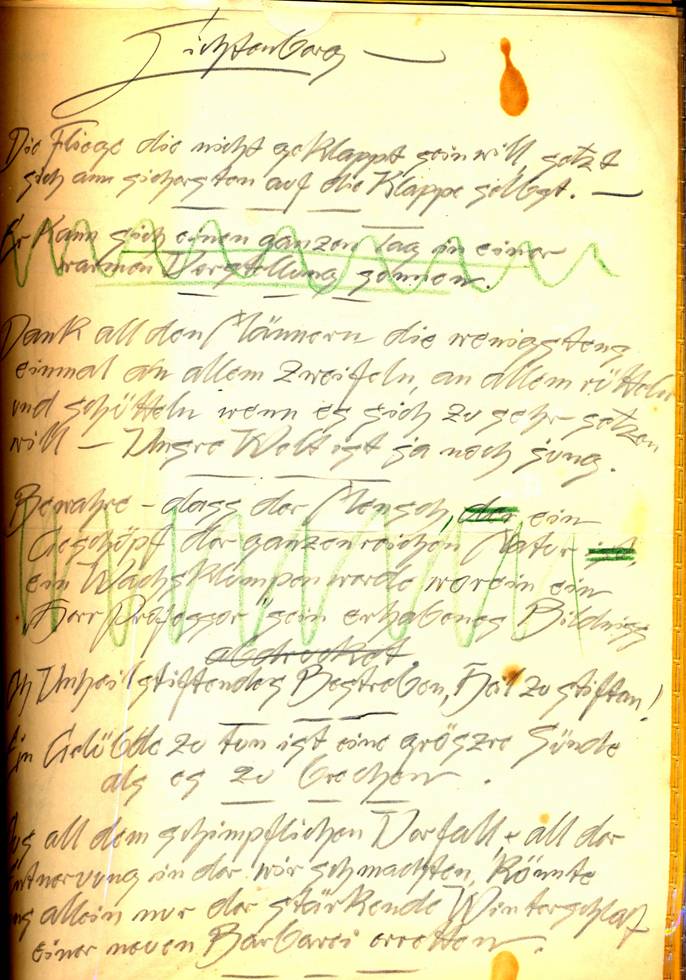 Lichtenberg —
Die Fliege die nicht geklappt sein will, setzt
sich am sichersten auf die Klappe selbst. —
Er kann sich einen ganzen Tag in einer
warmen Vorstellung sonnen.
Dank all den Männern die wenigstens
einmal an allem Zweifeln, an allem rütteln
und schütteln wenn es sich zu sehr setzen
will — Unsre Welt ist ja noch jung.
Bewahre – dass der Mensch, der ein
Geschöpf der ganzen reichen Natur ist,
ein Wachsklumpen werde worein ein
"Herr Professor" sein erhabenes Bildniss
abdrocket
Oh Unheil stiftendes Bestreben, Heil zu stiften!
Ein Gelübde zu tun ist eine gröszre Sünde
als es zu brechen.
Aus all dem schimpflichen Vorfall, + all der
Entnervung in der wir schmachten, könnte
uns allein nur der stärkende Winterschlaf
einer neuen Barbarei erretten.